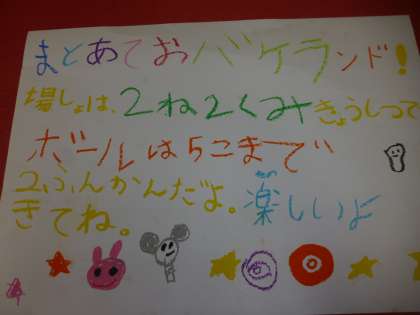 まとあておバケランド!
場しょは、2ね2くみきょうしつで
ボールは5こまで
2ふんかんだよ。楽しいよ
きてね。